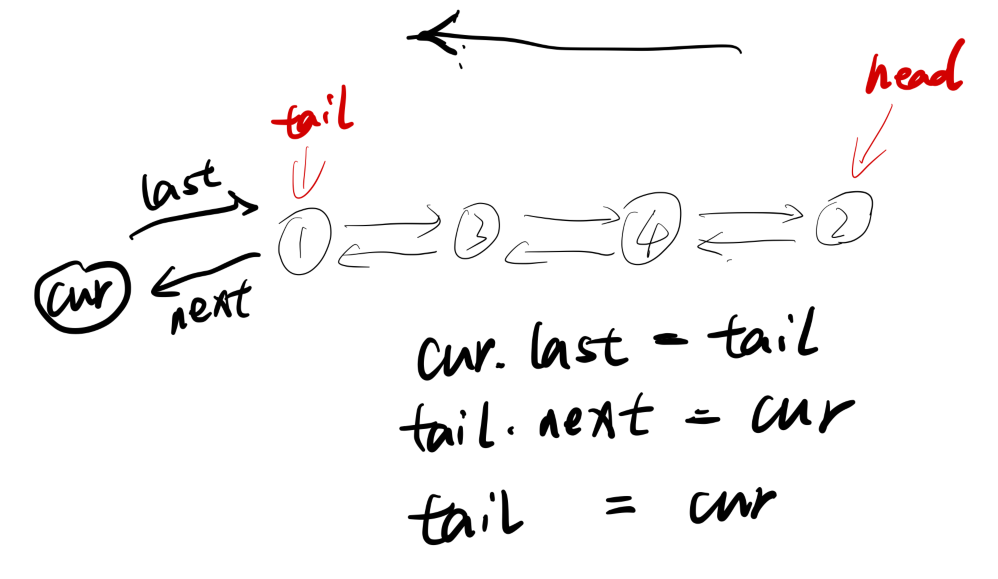 head
tail
last
1 3 4 2
cur
next
cur. last = tail
tail. next = cur
tail = cur